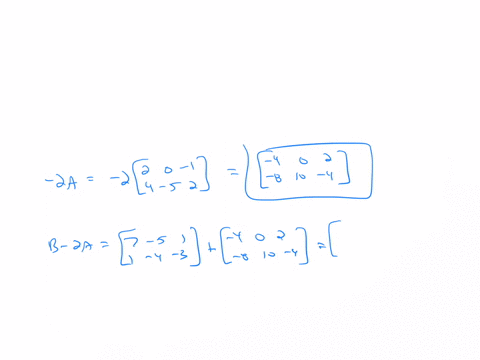 -2A = -2 [2 0 -1; 4 -5 2] = [-4 0 2; -8 10 -4]
B-2A = [7 -5 1; 1 -4 -3] + [-4 0 2; -8 10 -4] = [